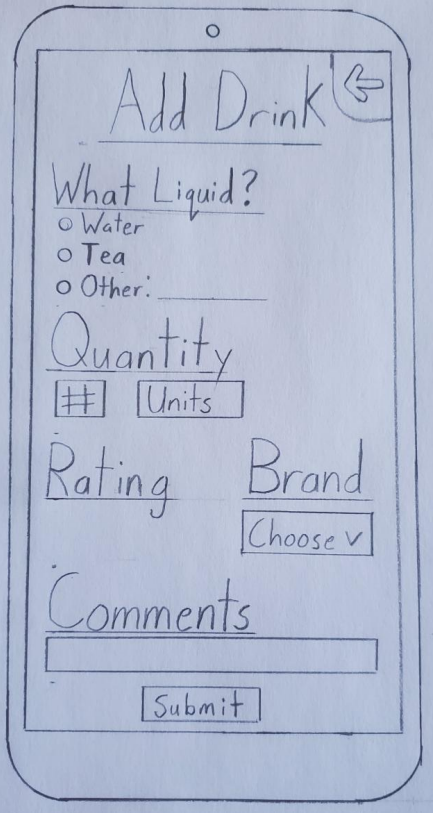 Add Drink
What Liquid?
Water
Tea
Other:
Quantity
# Units
Rating Brand
Choose
Comments
Submit